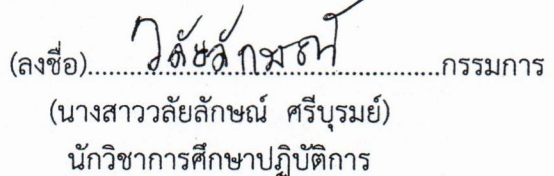 (ลงชื่อ)........วลัยลักษณ์........กรรมการ
(นางสาววลัยลักษณ์ ศรีบุรมย์)
นักวิชาการศึกษาปฏิบัติการ